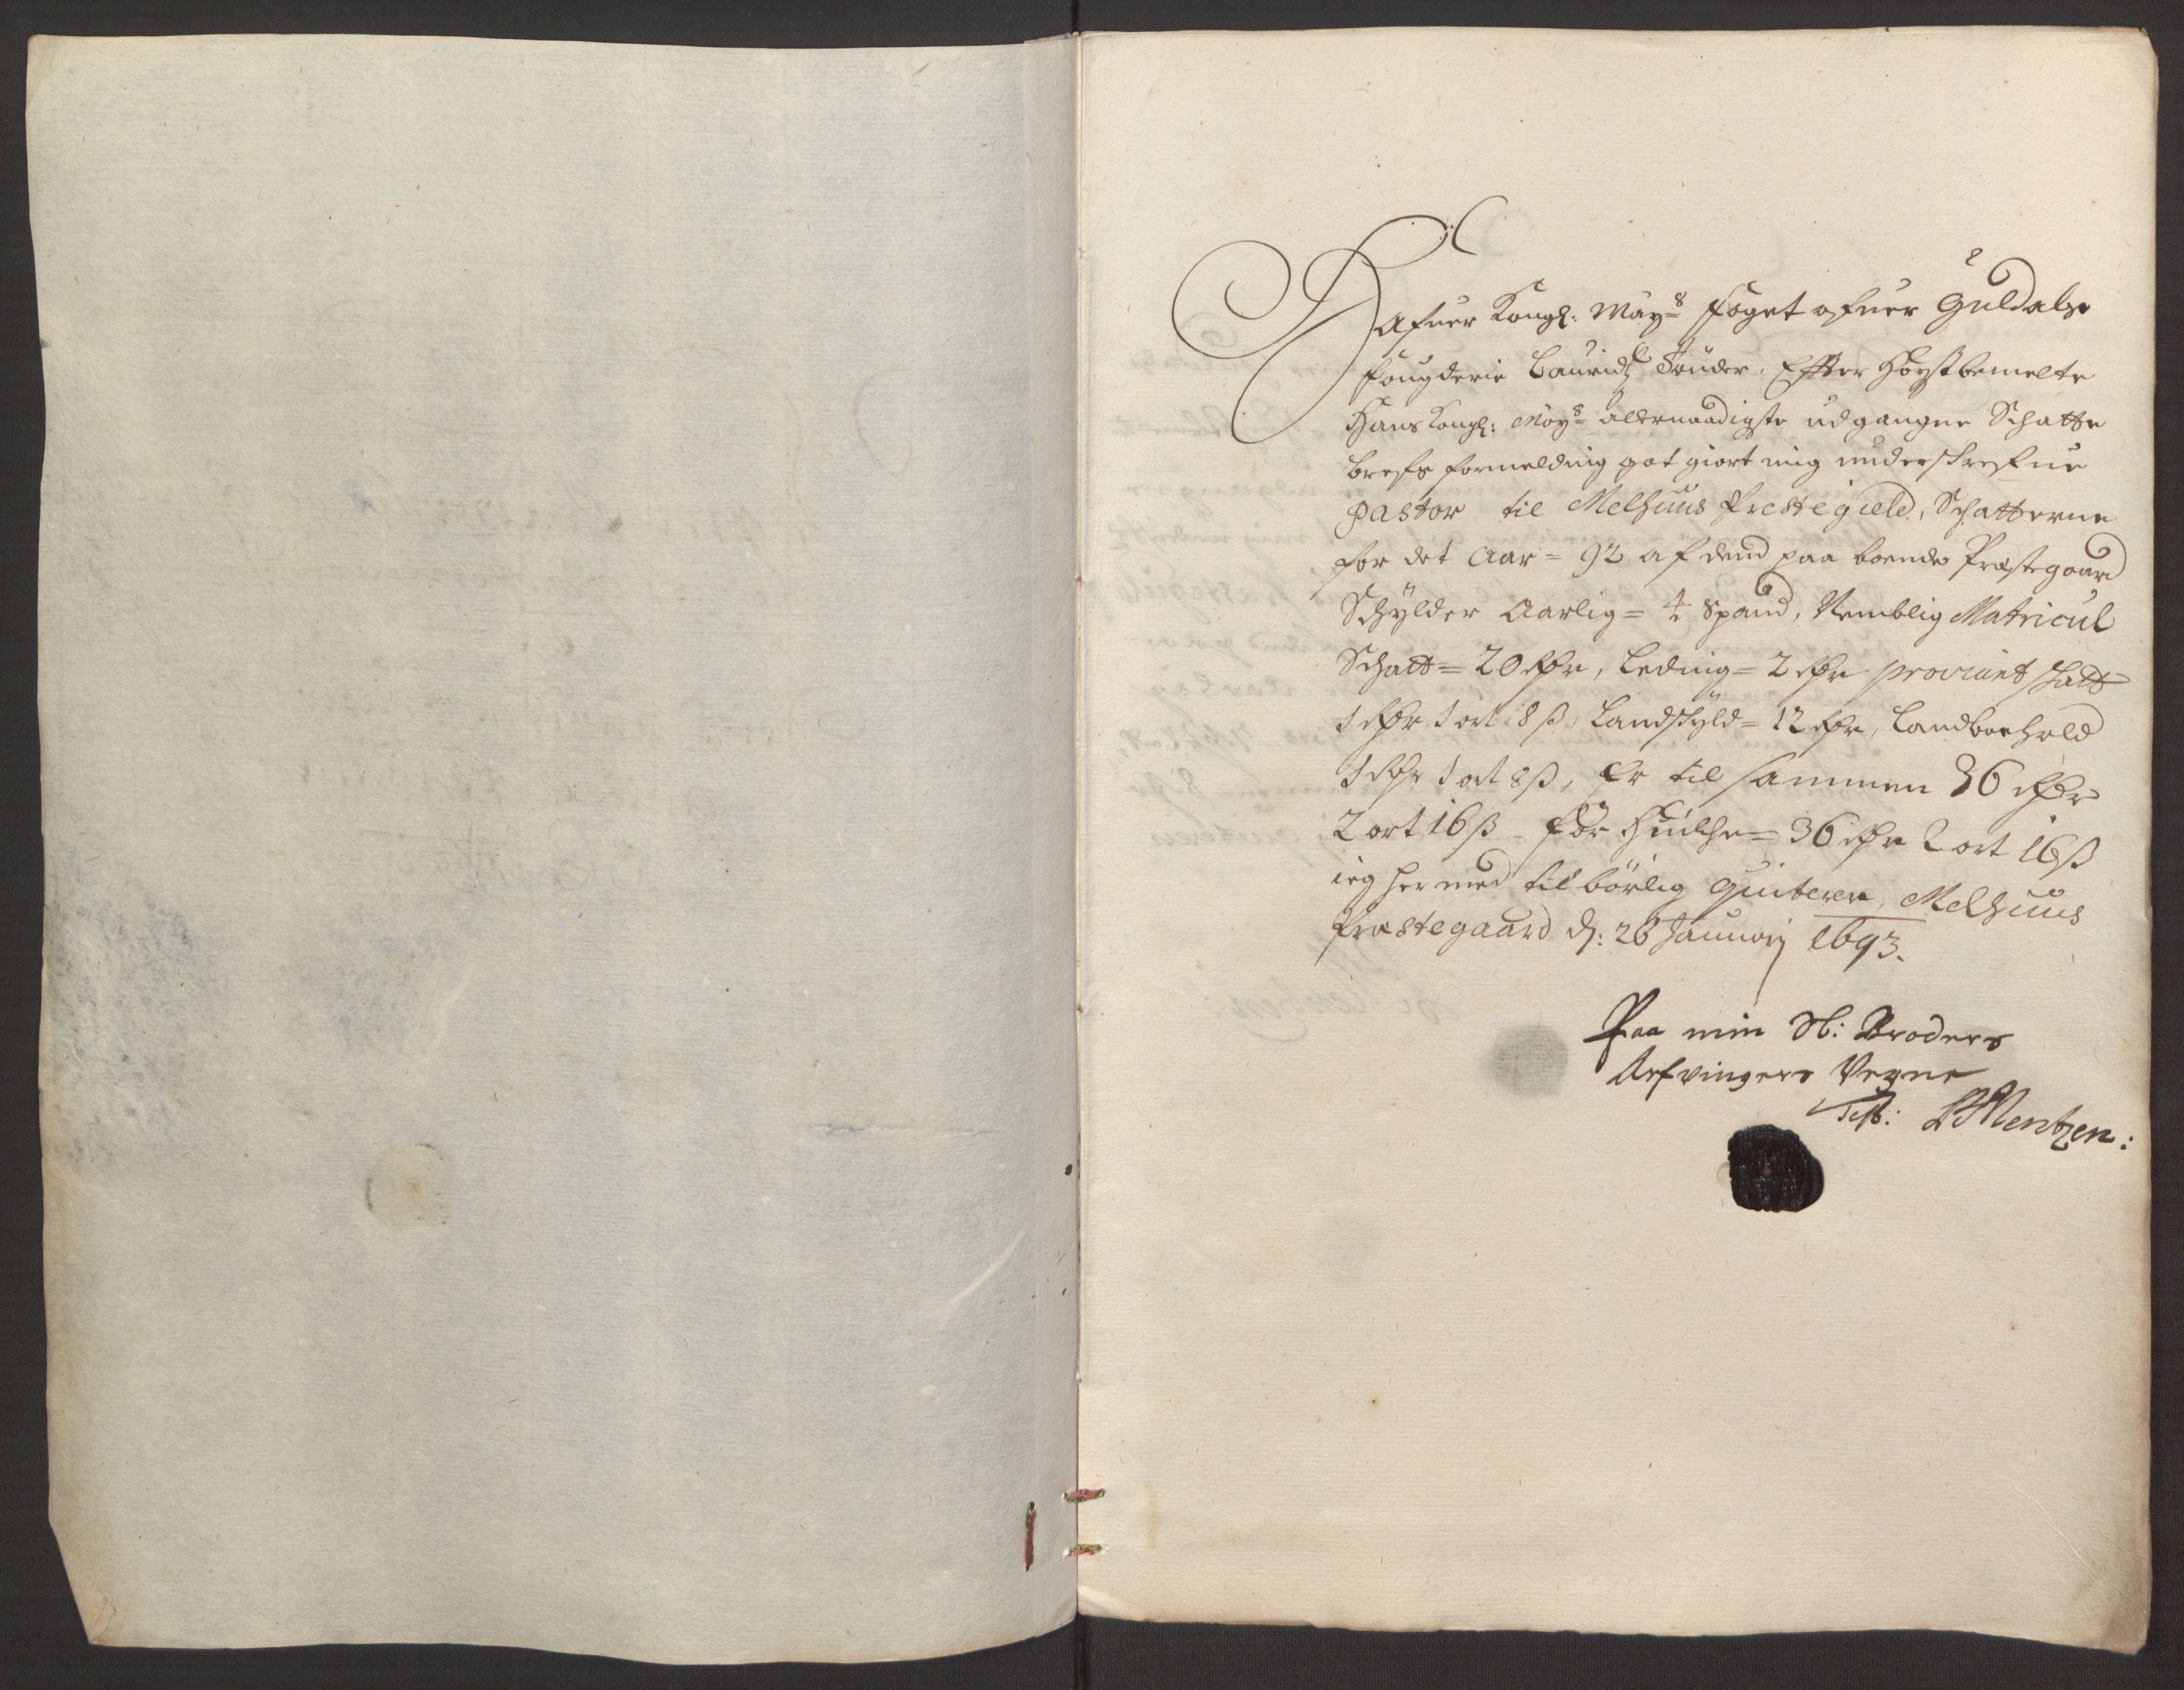 Hafuer Kongl: Mayˢ foget ofuer Guldals
fougderie Lauridtz Tønder, Effter Høystbemelte
Hans Kongl: Mayˢ allernaadigste udgangne Schatte
brefs formelding got giort mig underskrefne
Pastor til Melhuus Prestegield, Schatterne
for det Aar = 92 af dend paa boende Præstegaard
Schylder Aarlig = 4 Spand, Nemblig Matricul
Schatt = 20 rdr, Leding = 2 rdr proviant skatt
1 rdr 1 ort 8 ß, Landskyld = 12 rdr, Landboehold
1 rdr 1 ort 8 ß, Er til sammen 36 rdr
2 ort 16 ß for huilche = 36 rdr 2 ort 16 ß
ieg her med tilbörlig Quiterer, Melhuus
Præstegaard d: 26 Januarij 1693.
Paa min Sl: Broders
Arfvingers Vegne
Test: Mentzen: